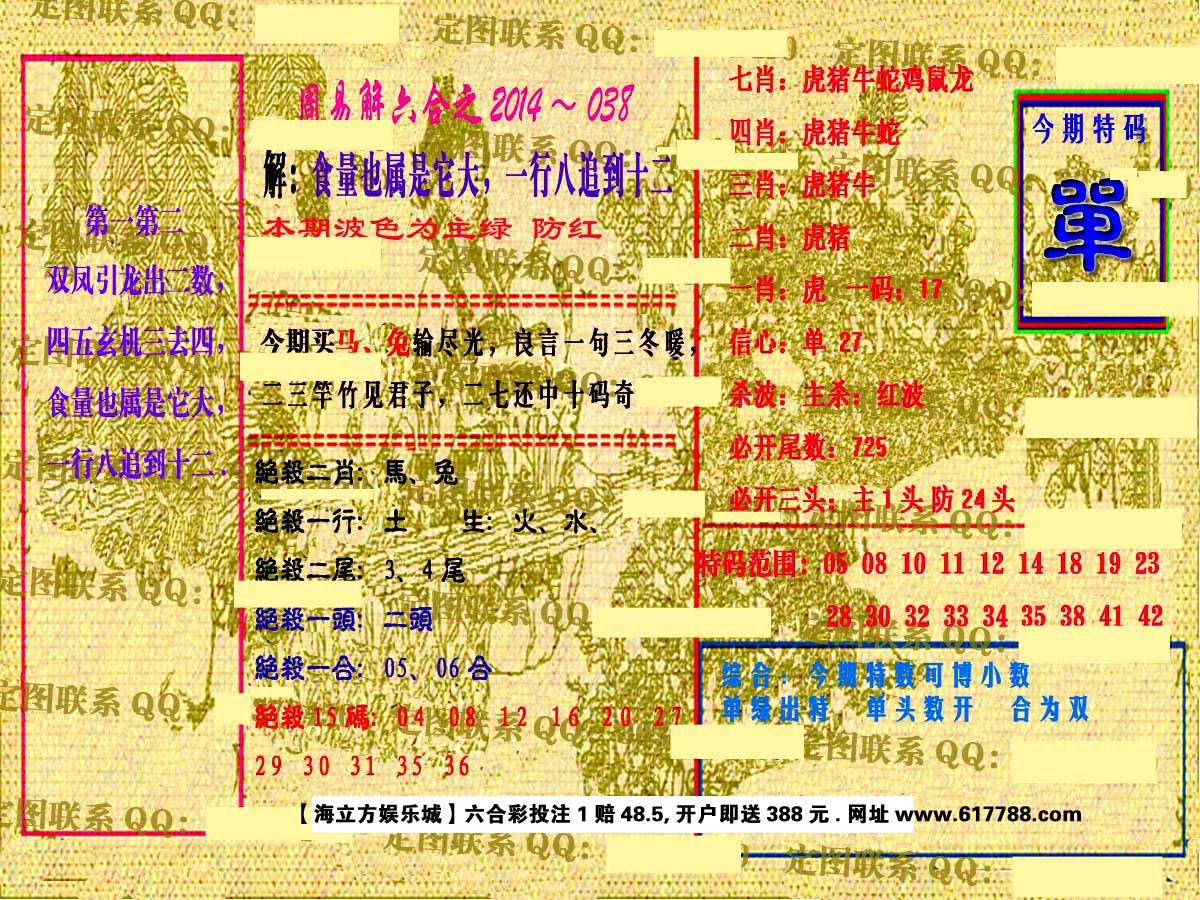 定图联系 QQ:
周易解六合之 2014～038
解:食量也属是它大，一行八追到十二
本期波色为主绿 防红
第一第二
双凤引龙出二数，
四五玄机三去四，
食量也属是它大，
一行八追到十二.
今期买马、兔输尽光，良言一句三冬暖，
二三竿竹见君子，二七还中十码奇
絕殺二肖: 馬、兔
絕殺一行: 土 生: 火、水、
絕殺二尾: 3、4 尾
絕殺一頭: 二頭
絕殺一合: 05、06 合
絕殺 15 碼: 04 08 12 16 20 27
29 30 31 35 36
七肖: 虎猪牛蛇鸡鼠龙
四肖: 虎猪牛蛇
三肖: 虎猪牛
二肖: 虎猪
一肖: 虎 一码: 17
信心: 单 27
杀波: 主杀: 红波
必开尾数: 725
必开三头: 主 1 头 防 24 头
今期特码
單
特码范围: 05 08 10 11 12 14 18 19 23
28 30 32 33 34 35 38 41 42
综合: 今期特数可博小数
单绿出特 单头数开 合为双
【海立方娱乐城】六合彩投注 1 赔 48.5, 开户即送 388 元 . 网址 www.617788.com